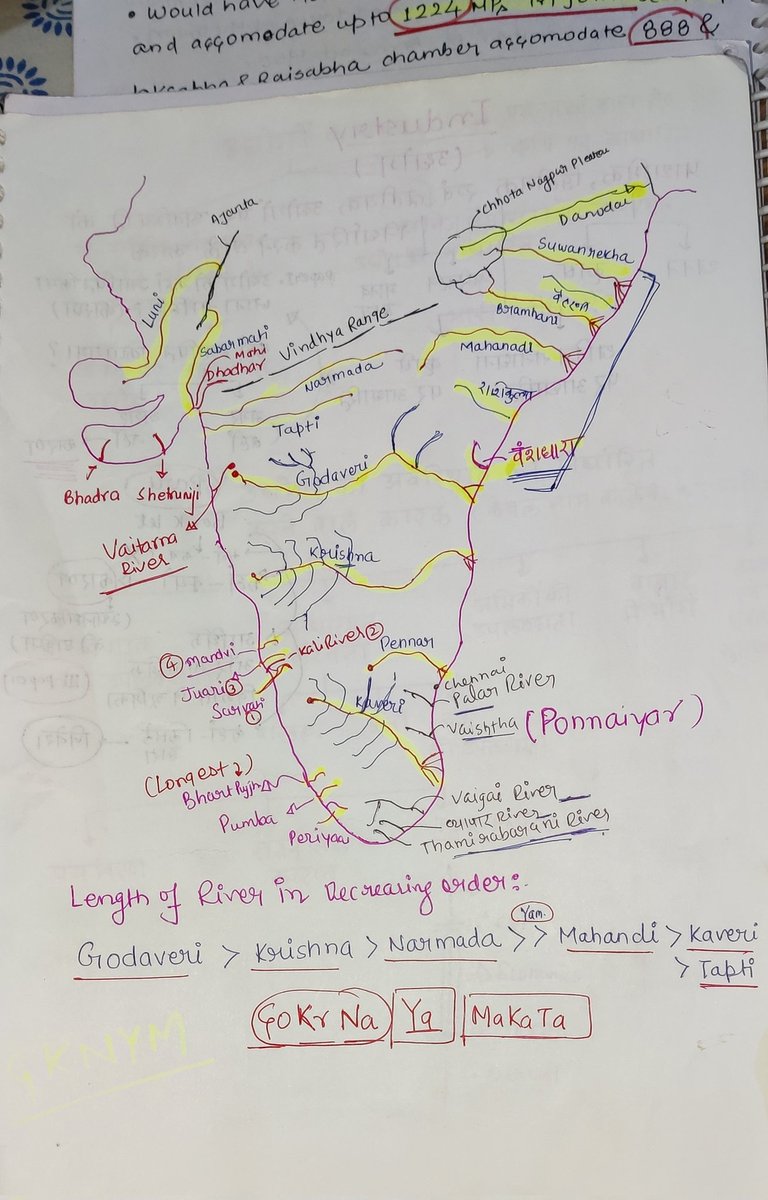 • Would have
and accomodate upto 1224
chamber accomodate 888 &
Ajanta
Chhota Nagpur Pleateu
Damodar
Suwanrekha
Bramhani
Mahanadi
Luni
Sabarmati
Mahi
Dhadhar
Vindhya Range
Narmada
Tapti
वंशधारा
Godaveri
Bhadra
Shetrunji
Vaitarna
River
Krishna
④ mandvi
Kali River ②
Juari ③
Sarvati
①
Pennar
Chennai
Palar River
Kaveri
Vaishtha (Ponnaiyar)
(Longest ↓)
Pumba
Periyaar
Vaigai River
River
Thamirabarani River
Length of River in Decreasing order:-
Yam.
Godaveri > Krishna > Narmada >> Mahandi > Kaveri
> Tapti
GO Kr Na Ya MaKaTa
GKNYM